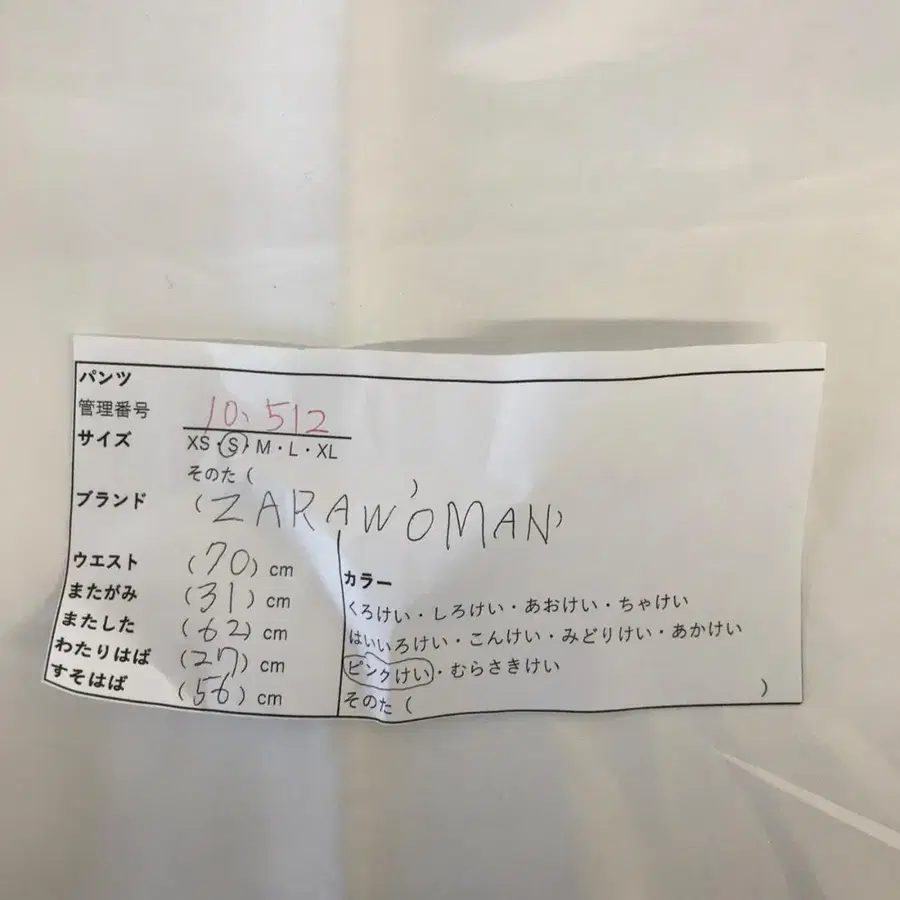 パンツ
管理番号 10、512
サイズ XS・S・M・L・XL
そのた( )
ブランド (ZARAW'OMAN)
ウエスト (70) cm
またがみ (31) cm
またした (62) cm
わたりはば (27) cm
すそはば (56) cm
カラー
くろけい・しろけい・あおけい・ちゃけい
はいいろけい・こんけい・みどりけい・あかけい
ピンクけい・むらさきけい
そのた( )